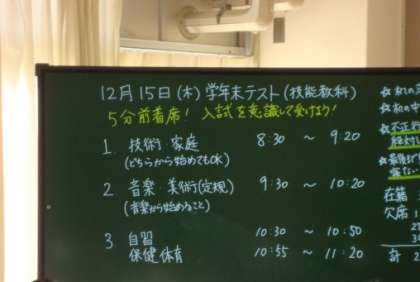 12月15日(木)学年末テスト(技能教科)
5分前着席! 入試を意識して受けよう!
1. 技術・家庭 8:30 ～ 9:20
(どちらから始めてもOK)
2 音楽・美術(定規) 9:30 ～ 10:20
(音楽から始めること)
3 自習 10:30 ～ 10:50
保健体育 10:55 ～ 11:20
☆
☆
☆不正
絶対
☆最後
在籍
欠席
計 2